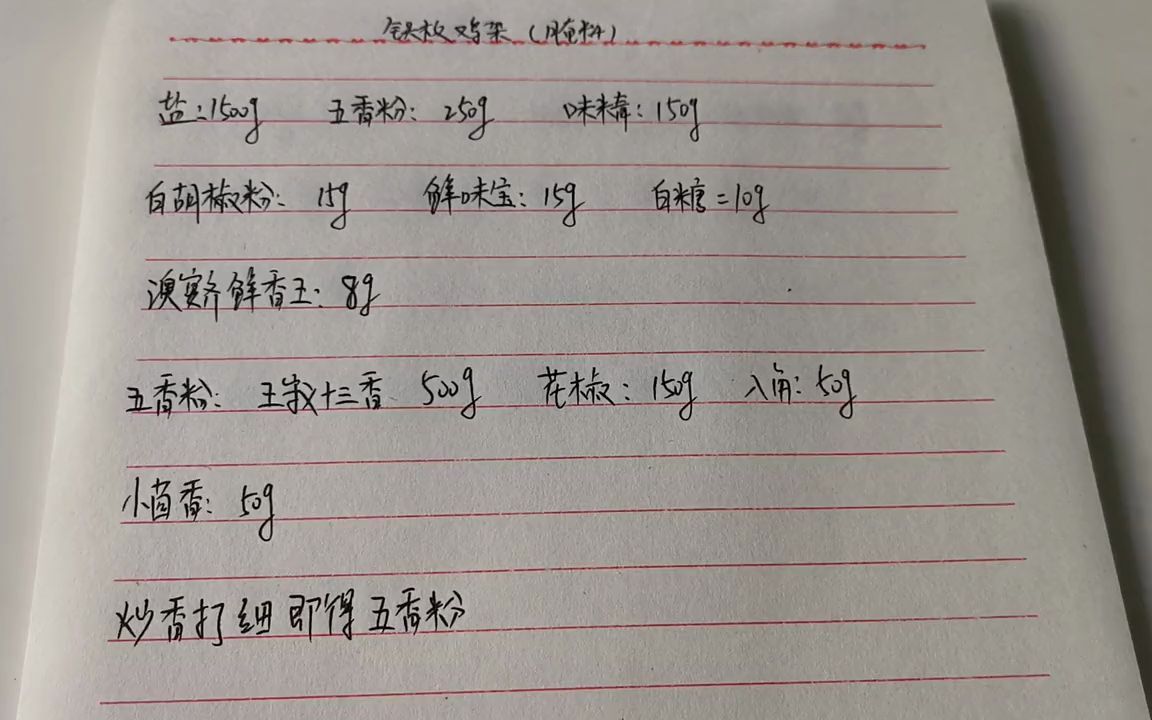 铁板鸡架（腌料）
盐：1500g 五香粉：250g 味精：150g
白胡椒粉：15g 鲜味宝：15g 白糖=10g
澳宴齐鲜香王：8g
五香粉：王守义十三香 500g 花椒：150g 八角：50g
小茴香：50g
炒香打细即得五香粉